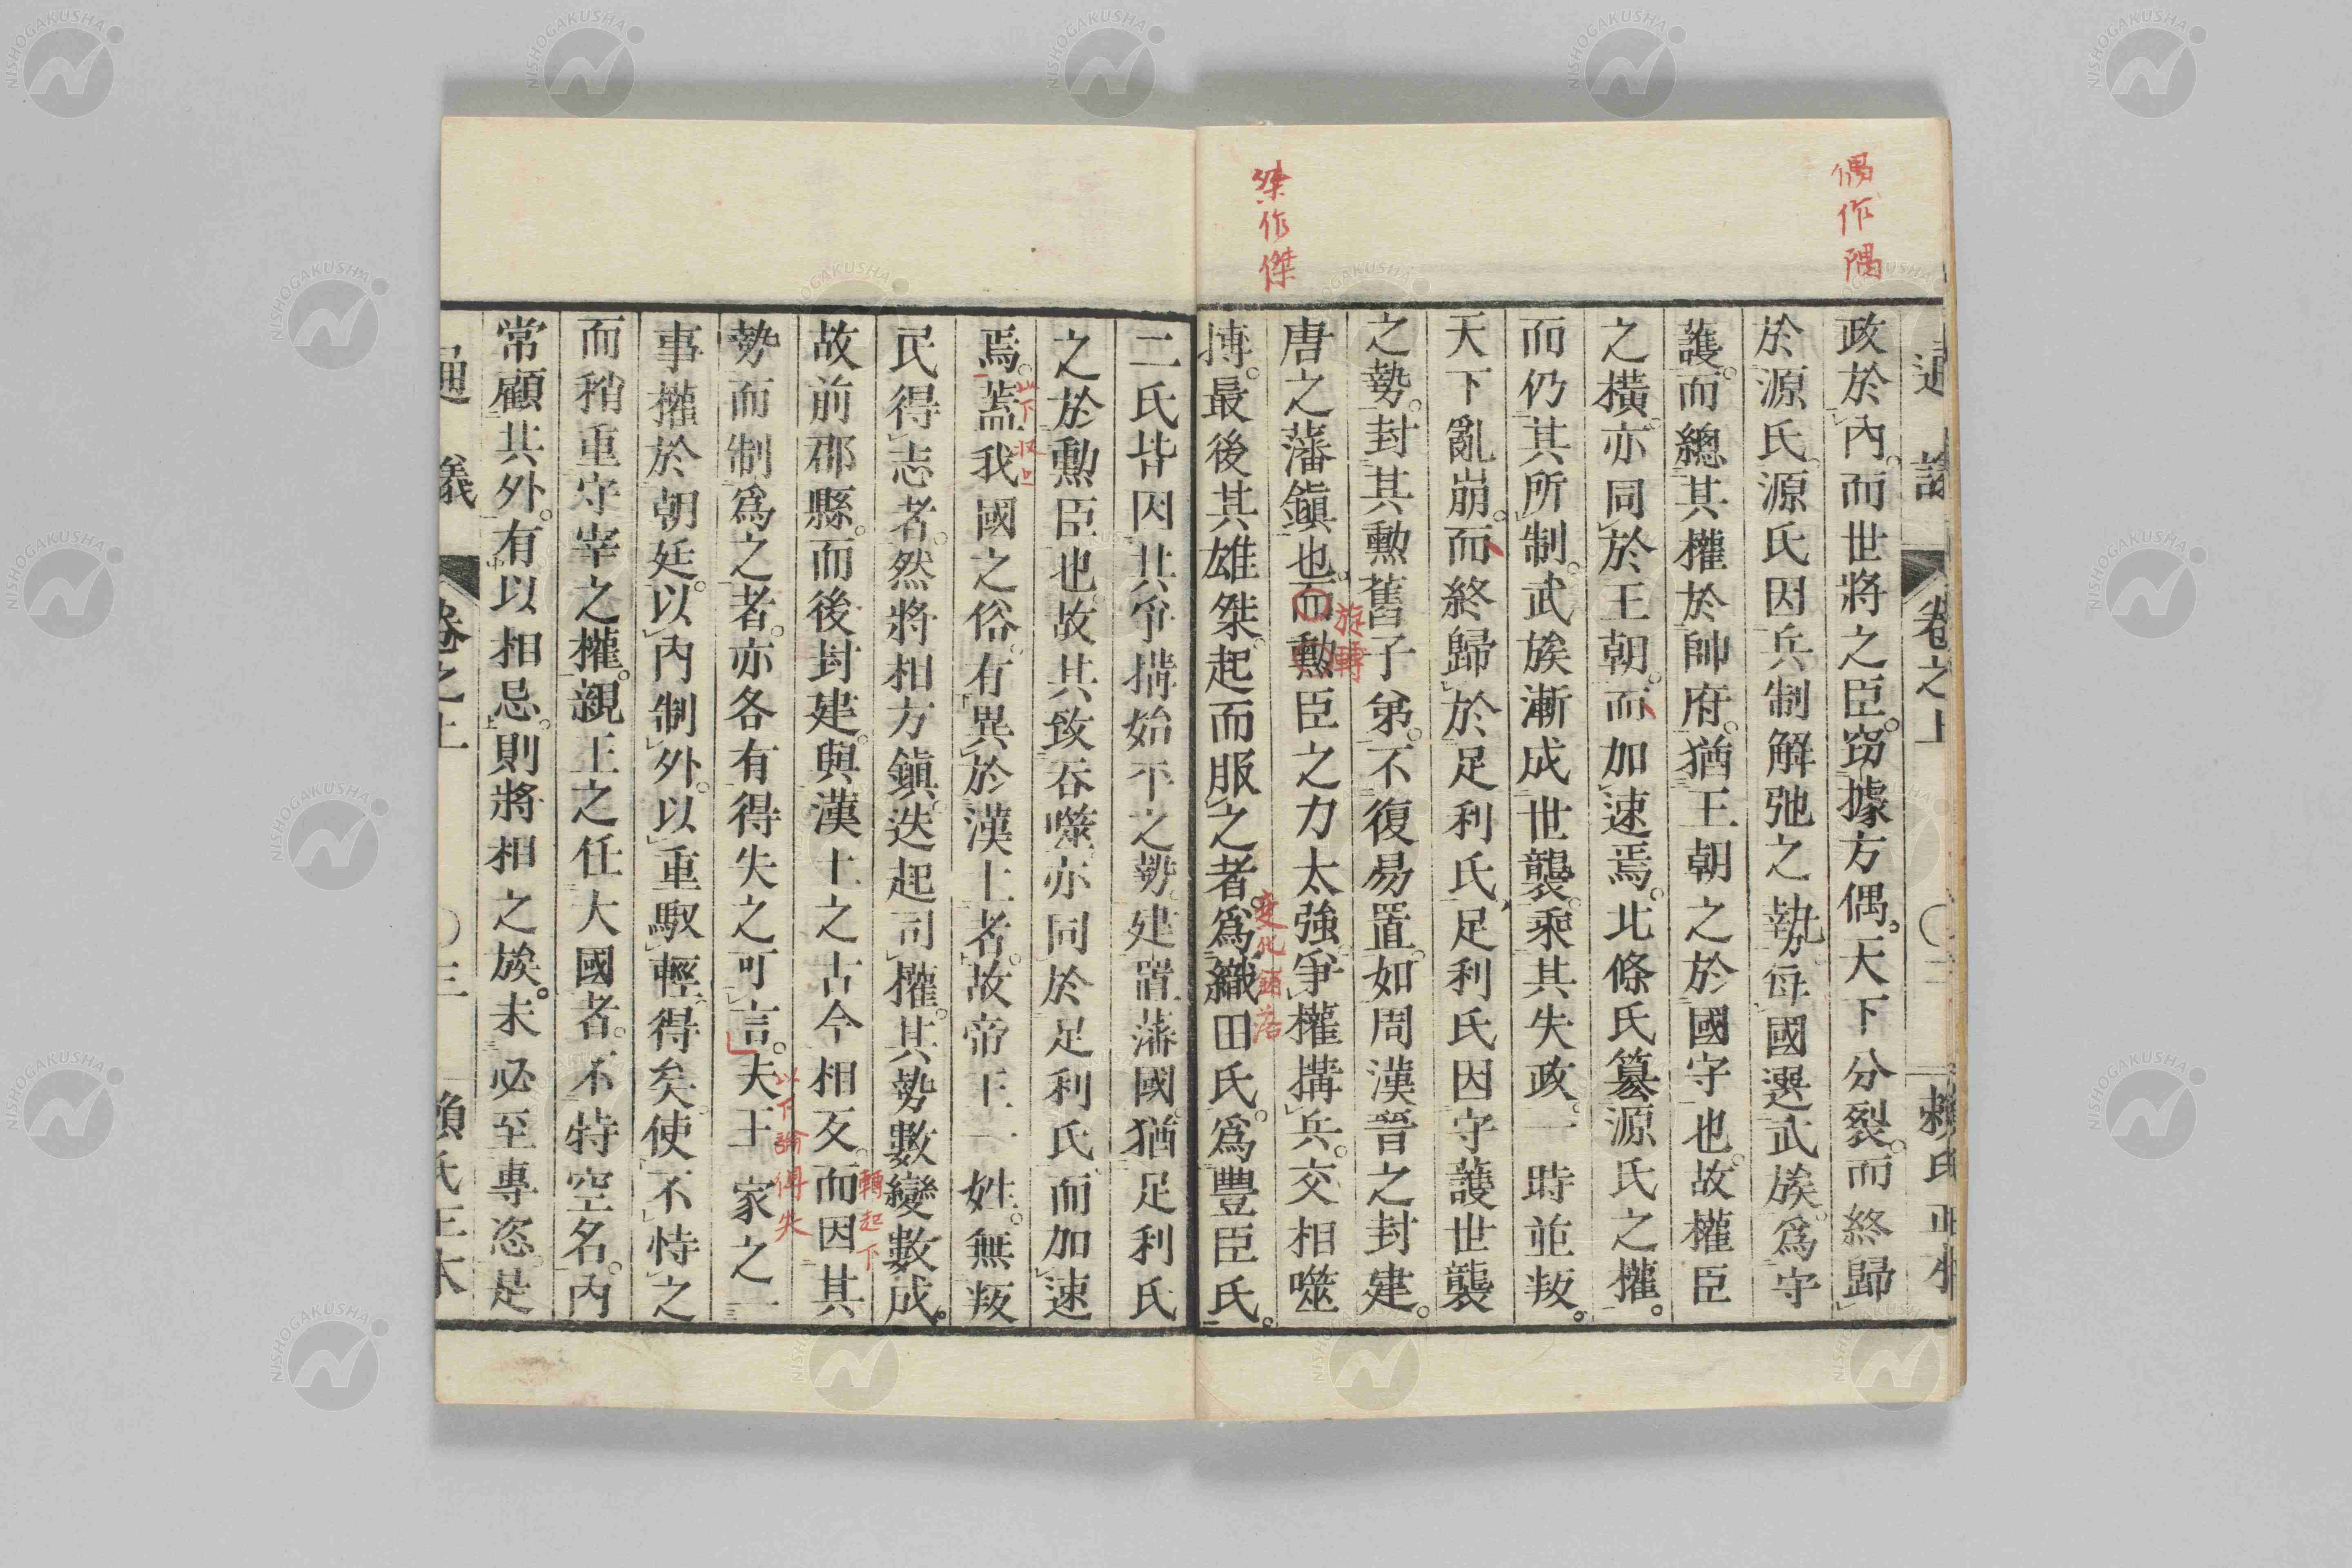 偶作隅
桀作傑
政於内。而世將之臣。窃據方偶。天下分裂。而終歸
於源氏。源氏因兵制解弛之勢。每國選武族。爲守
護。而總其權於帥府。猶王朝之於國守也。故權臣
之橫。亦同於王朝。而加速焉。北條氏簒源氏之權。
而仍其所制。武族漸成世襲。乘其失政。一時並叛。
天下亂崩。而終歸於足利氏。足利氏因守護世襲
之勢。封其勲舊子弟。不復易置。如周漢晉之封建。
唐之藩鎭也。而勲臣之力太強。爭權搆兵。交相噬
旋轉
搏。最後其雄桀。起而服之者。爲織田氏。爲豐臣氏。
変化錯落
二氏皆因其爭搆始平之勢。建置藩國。猶足利氏
之於勲臣也。故其致吞噬。亦同於足利氏。而加速
焉。蓋我國之俗。有異於漢土者。故帝王一姓。無叛
民得志者。然將相方鎭。迭起司權。其勢數變數成。
故前郡縣。而後封建。與漢土之古今相反。而因其
轉起下
勢而制爲之者。亦各有得失之可言。夫王家之一
以下論得失
事權於朝廷。以内制外。以重馭輕。得矣。使不恃之
而稍重守宰之權。親王之任大國者。不特空名。内
常顧其外。有以相忌。則將相之族。未必至專恣。是
通議
卷之上
〇三
賴氏正本